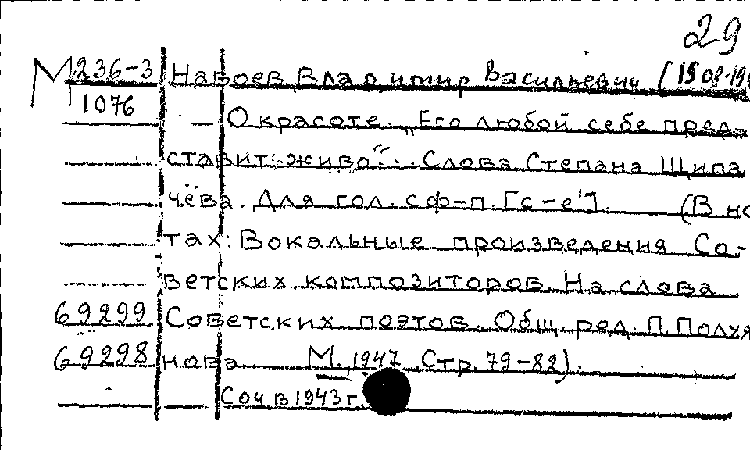 29
М236-3 Набоев Владимир Васильевич (15 08 19
1076
— О красоте. „Его любой себе пред-
ставит живо"... Слова Степана Щипа
чёва. Для гол. с ф-п. [с - е²]. (В но
тах: Вокальные произведения Со-
ветских композиторов. На слова
69299 Советских поэтов. Общ. ред. П. Полухи
69298 нова. М. 1947 Стр. 79-82).
Соч. в 1943 г.